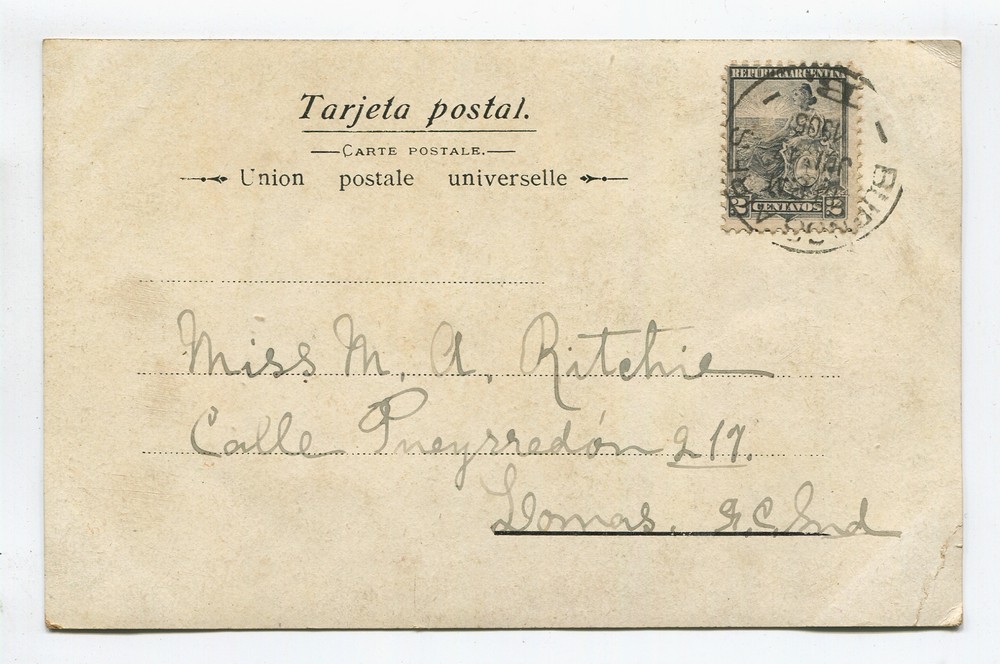 Tarjeta postal.
CARTE POSTALE.
Union postale universelle
REPUBLICA ARGENTINA
2 CENTAVOS 2
1905
Miss M. A. Ritchie
Calle Pueyrredón 217.
Lomas. F.C. Sud